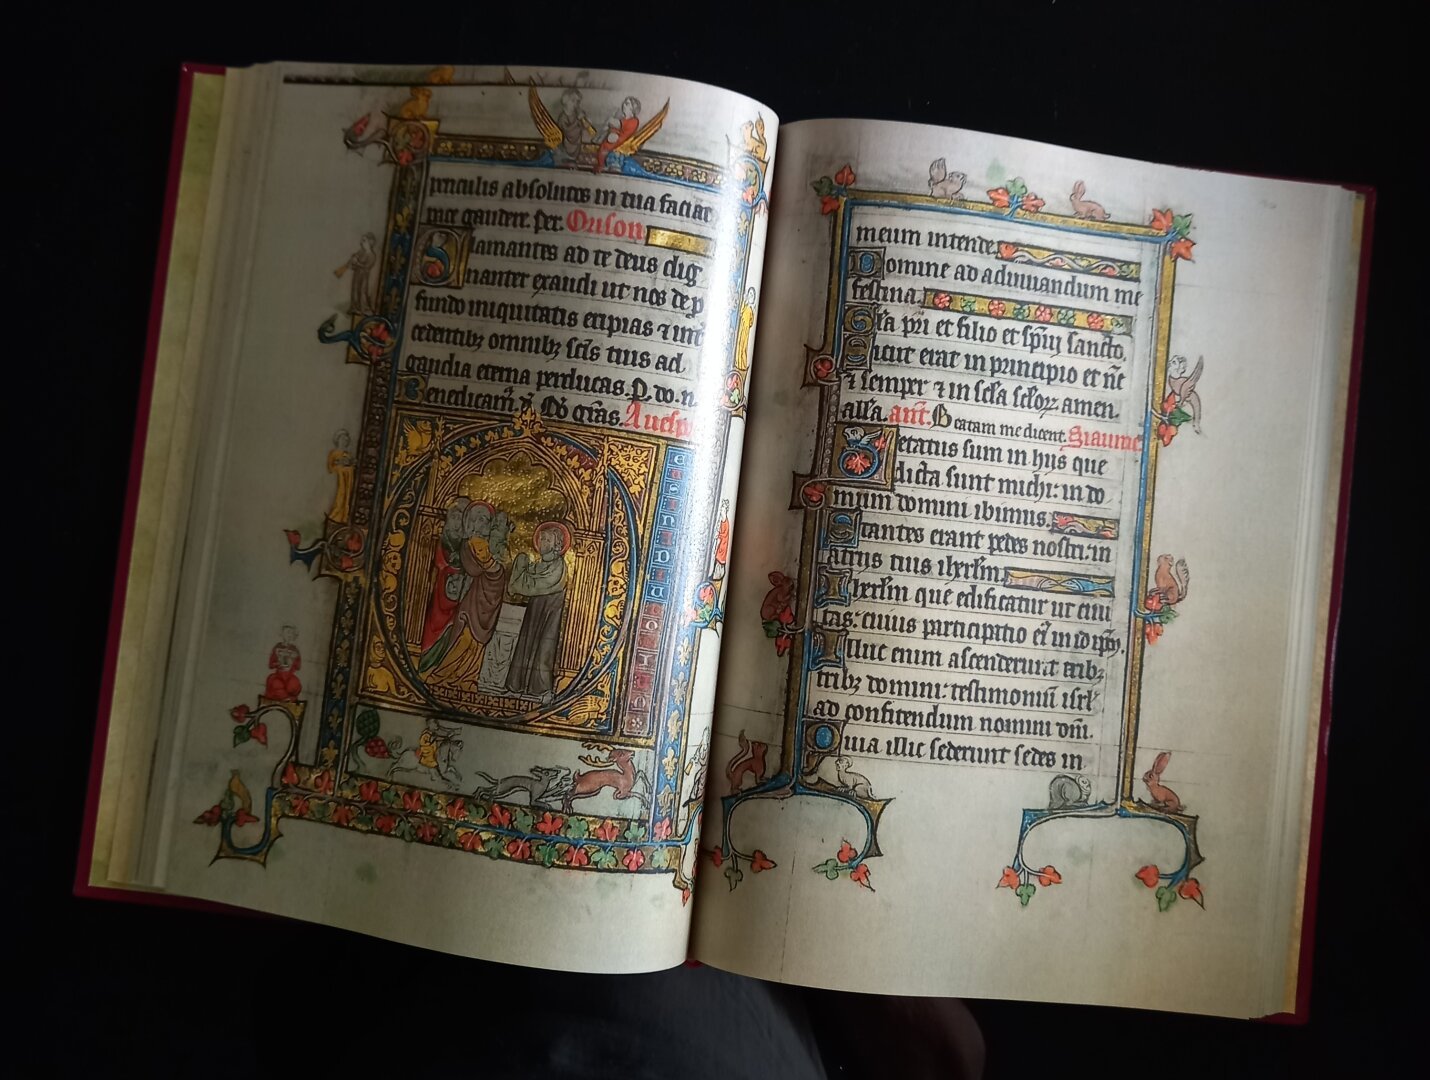 periculis absolutes in tua facias
pace gaudere. Per. Orison
Clamantes ad te deus dig
nanter exaudi ut nos de p
fundo iniquitatis eripias ⁊ int
cedentibꝫ omnibꝫ scis tuis ad
gaudia eterna perducas. P. do. n.
Benedicam. gras. A uesp
Deus in adiutoriu
meum intende
Domine ad adiuuandum me
festina.
Gla pri et filio et spui sancto,
Sicut erat in principio et nc
⁊ semper ⁊ in scla sclorꝫ amen.
alla. ant. Beatam me dicent. Siaume
Letatus sum in hijs que
dicta sunt michi: in do
mum domini ibimus.
Stantes erant pedes nostri: in
atrijs tuis ihrlm
Ihrlm que edificatur ut ciui
tas: cuius participatio ei in id ipm.
Illuc enim ascenderunt tribꝫ
tribꝫ domini: testimoniu isrl
ad confitendum nomini dni.
Quia illic sederunt sedes in